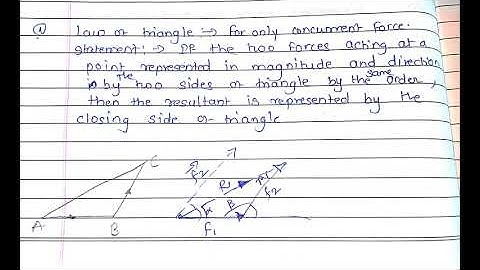 law of triangle :→ for only concument force.
Statement :→ If the two forces acting at a
point represented in magnitude and direction
by the two sides of triangle by the same order,
then the resultant is represented by the
closing side of triangle
C
F2
F2
A
B
F1